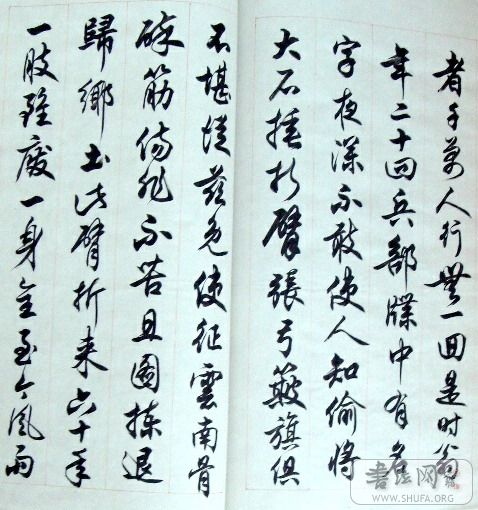 者千萬人行無一回是时翁
年二十四兵部牒中有名
字夜深不敢使人知偷將
大石捶折臂張弓簸旗俱
不堪從兹免使征雲南骨
碎筋傷非不苦且圖揀退
歸鄉土此臂折来六十年
一肢雖廢一身全至今風雨
書法网
WWW.SHUFA.ORG